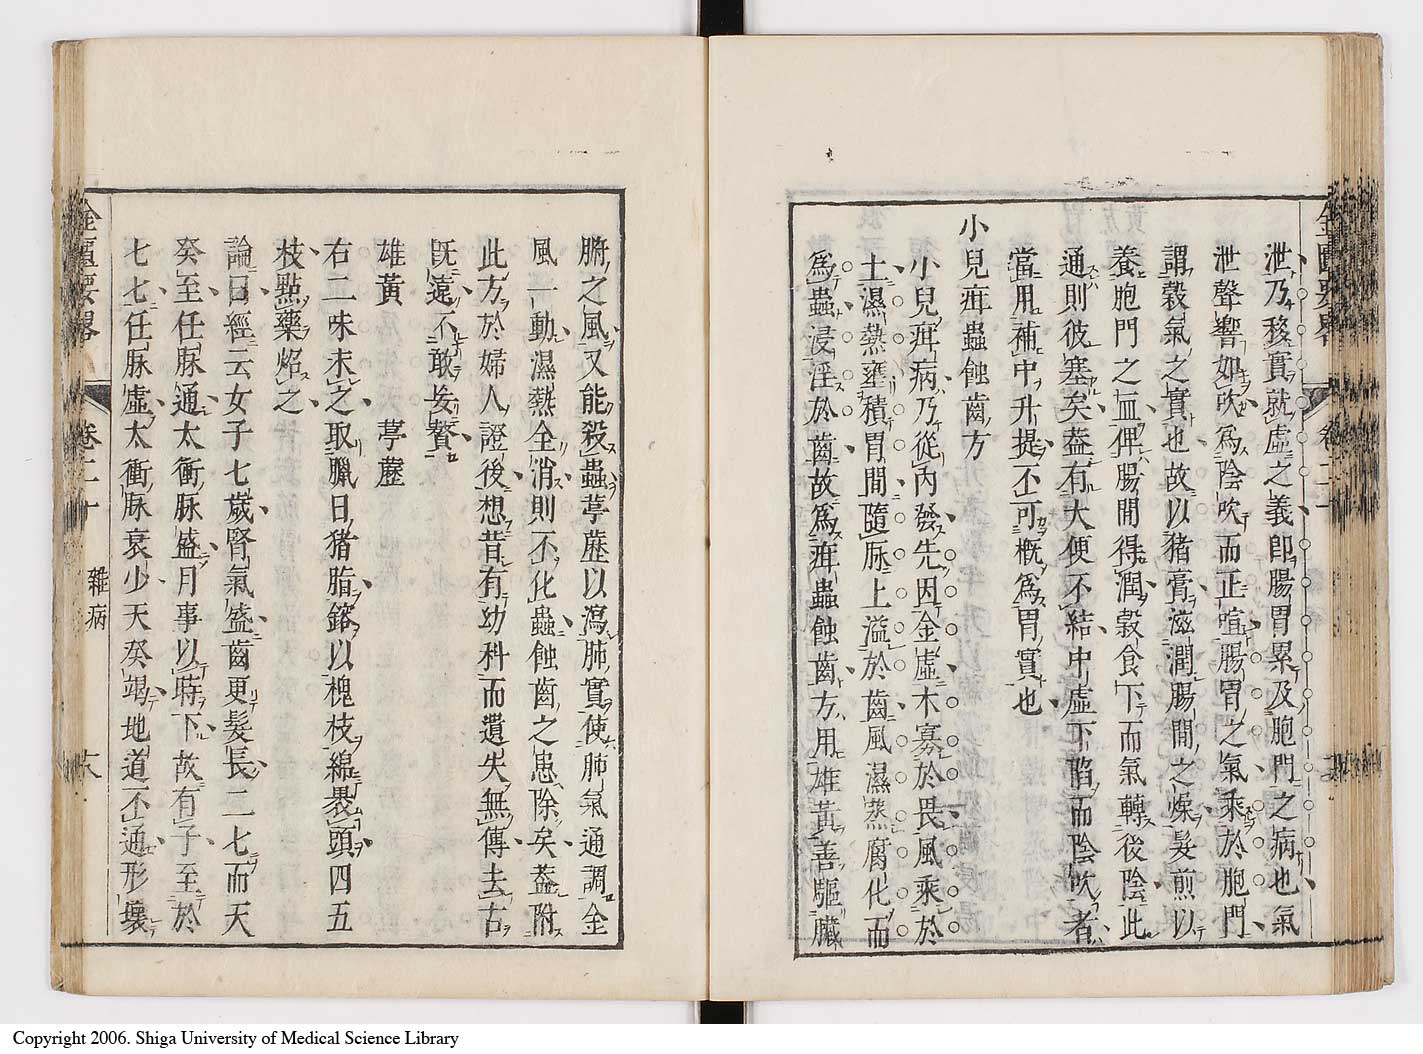 泄乃移實就虛之義即腸胃累及胞門之病也氣
泄聲響如吹爲陰吹而正喧腸胃之氣乘於胞門
謂穀氣之實也故以猪膏滋潤腸間之燥髮煎以
養胞門之血俾腸間得潤穀食下而氣轉後陰此
通則彼塞矣葢有大便不結中虛下陷而陰吹者
當用補中升提不可概爲胃實也
小兒疳蟲蝕齒方
小兒疳病乃從內發先因金虛木寡於畏風乘於
土濕熱壅積胃間隨脉上溢於齒風濕蒸腐化而
爲蟲浸淫於齒故爲疳蟲蝕齒方用雄黃善驅臟
腑之風又能殺蟲葶藶以瀉肺實使肺氣通調金
風一動濕熱全消則不化蟲蝕齒之患除矣葢附
此方於婦人證後想昔有幼科而遺失無傳去古
旣遠不敢妄贅
雄黃　葶藶
右二味末之取臘日猪脂鎔以槐枝綿裹頭四五
枝點藥烙之
論曰經云女子七歲腎氣盛齒更髮長二七而天
癸至任脉通太衝脉盛月事以時下故有子至於
七七任脉虛太衝脉衰少天癸竭地道不通形壞
金匱要畧　卷二十　雜病
Copyright 2006. Shiga University of Medical Science Library